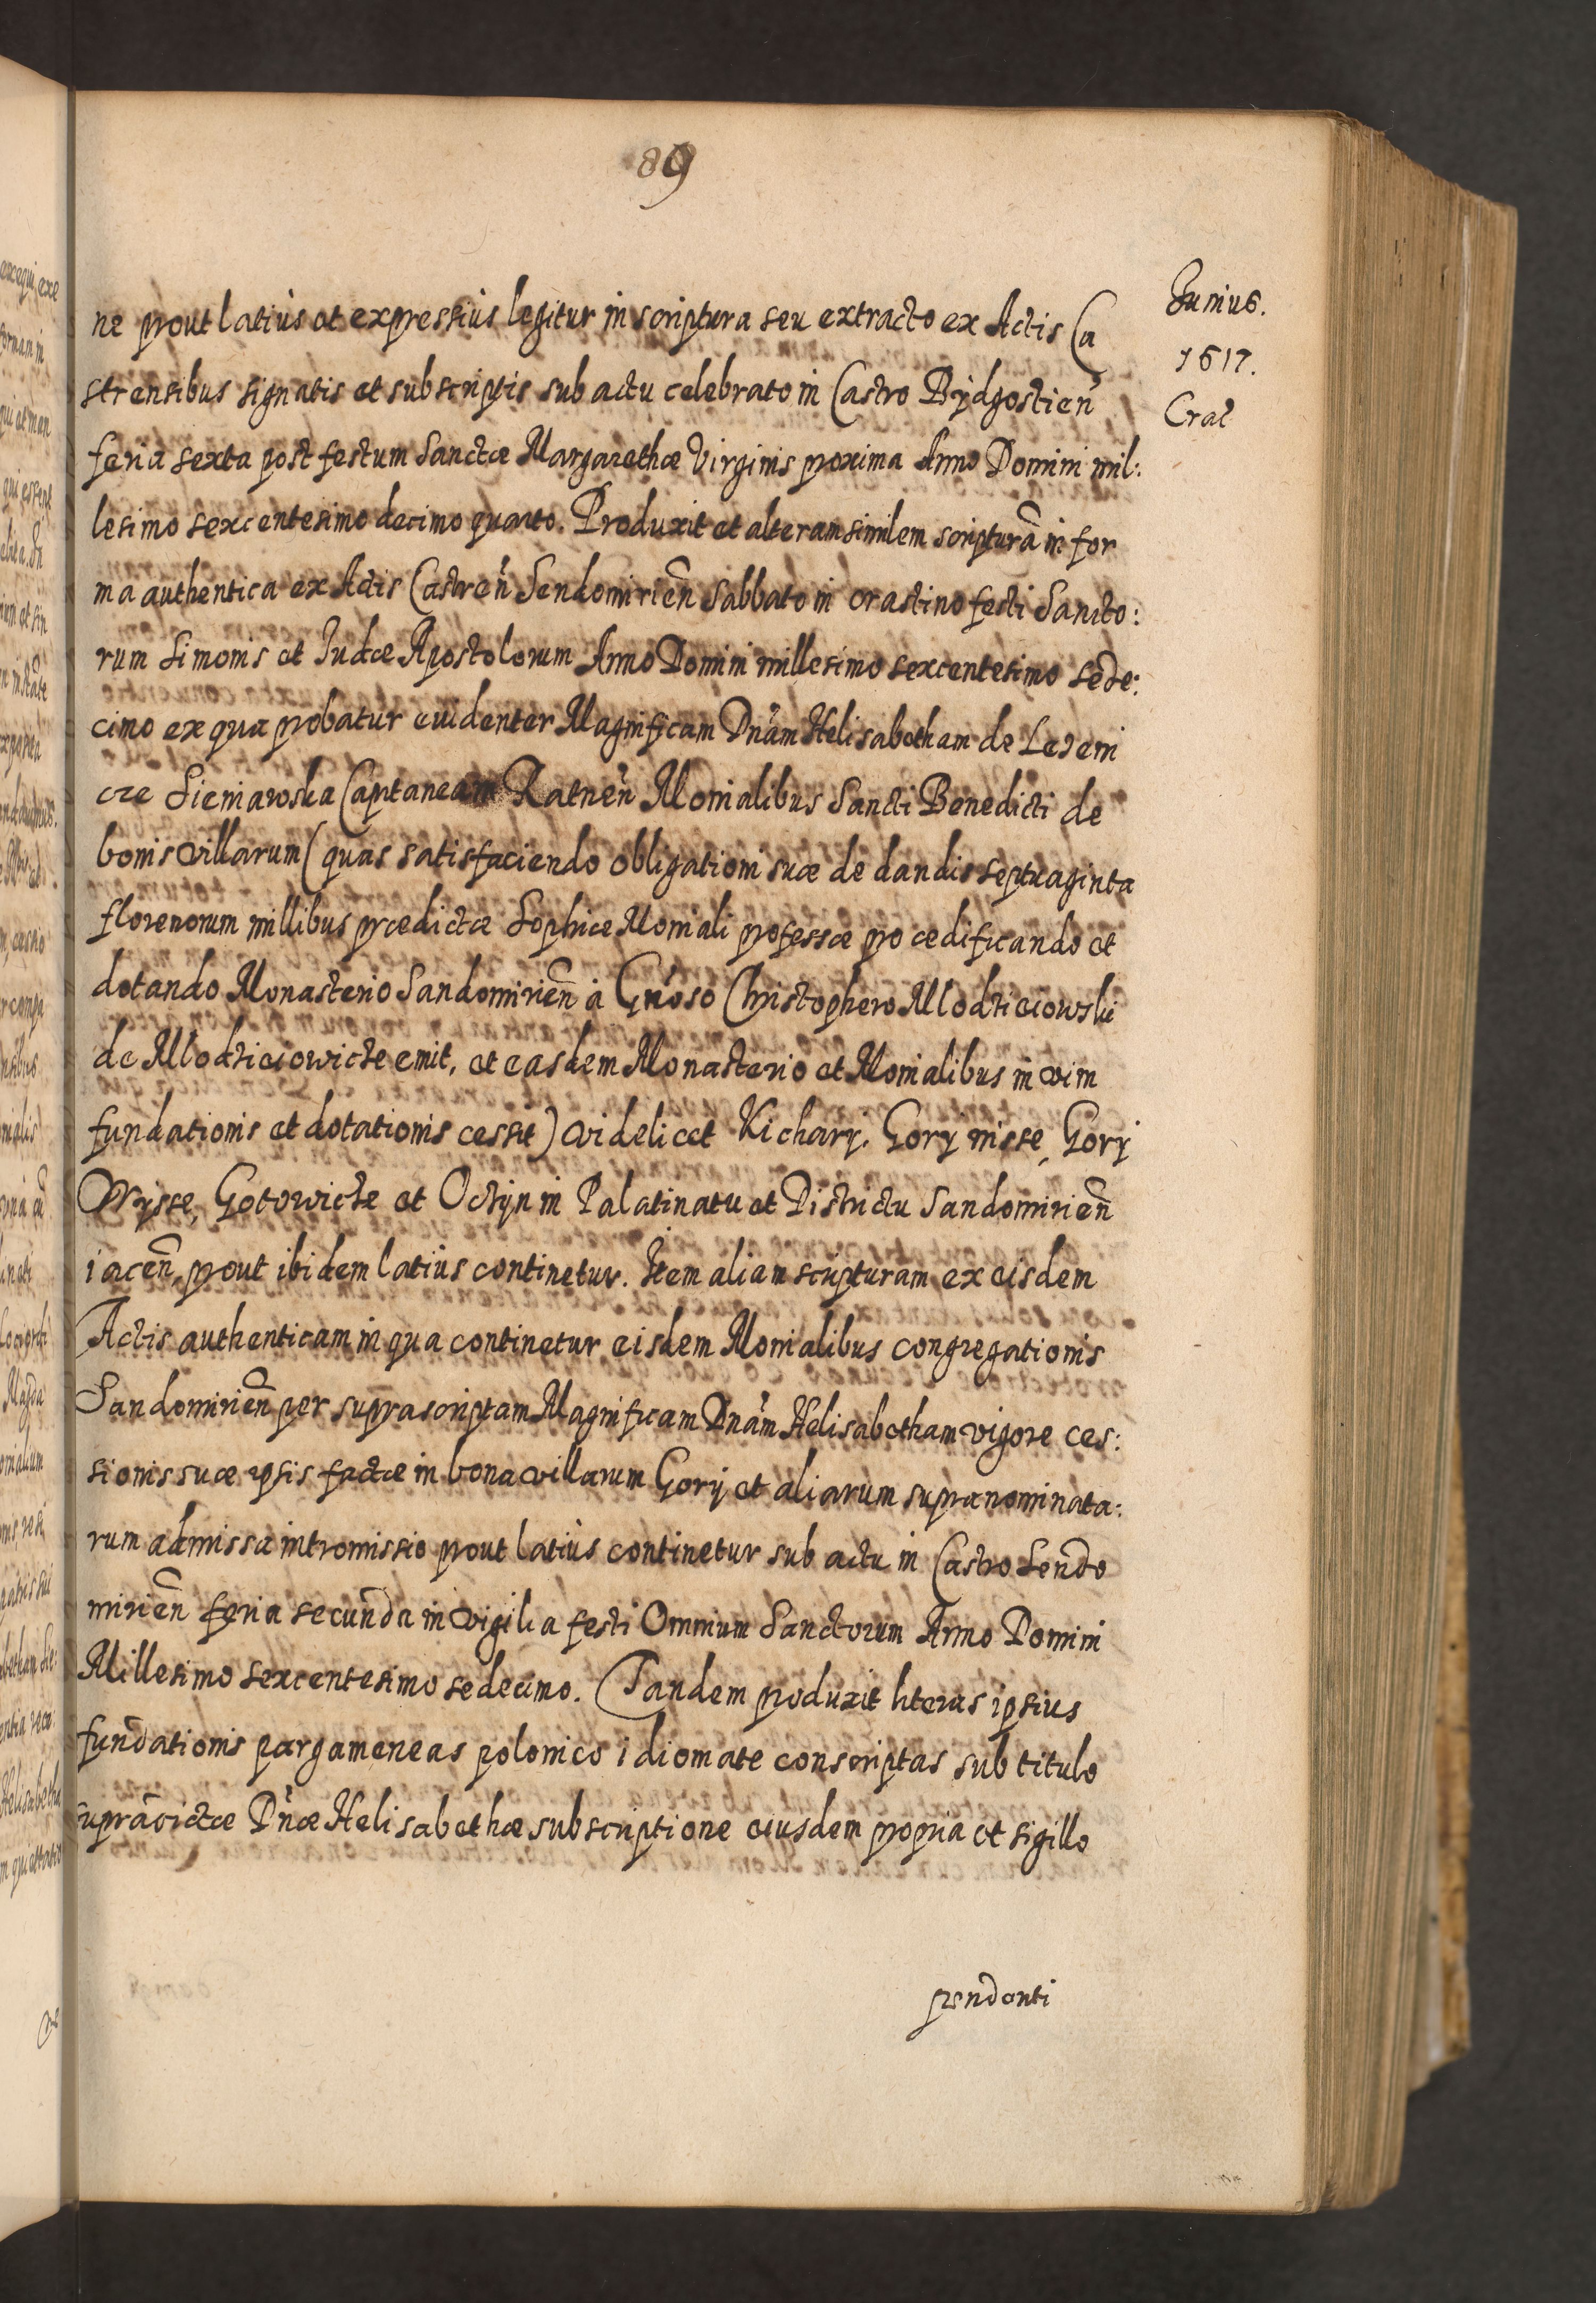 89
Junius.
1617.
Crac̃
ne prout latiùs et expressiùs legitur in scriptura seu extracto ex Actis Ca
strensibus signatis et subscriptis sub actu celebrato in Castro Bÿdgostien̄
feria sexta post festum Sanctæ Margarethæ Virginis proxima Anno Domini mil:
lesimo sexcentesimo decimo quarto. Produxit et alteram similem scripturã in for
ma authentica ex Actis Castren̄ Sendomirien̄ Sabbato in crastino festi Sancto:
rum Simonis et Judæ Apostolorum Anno Domini millesimo sexcentesimo sede:
cimo ex qua probatur euidenter Magnificam Dnãm Helisabetham de Leżeni
cze Sieniawska Capitaneam Ratnen̄ Monialibus Sancti Benedicti de
bonis villarum (quas satisfaciendo obligationi suæ de dandis septuaginta
florenorum millibus prædictæ Sophiæ Moniali professæ pro ædificando et
dotando Monasterio Sandomirien̄ à Gñoso Christophero Mlodzieiowski
de Mlodzieiowicze emit, et easdem Monasterio et Monialibus in vim
fundationis et dotationis cessit) videlicet Kicharÿ, Gorÿ nisse, Gorÿ
Wysse, Gotowicze et Octÿn in Palatinatu et Districtu Sandomirien̄
iacen̄, prout ibidem latiùs continetur. Item aliam scripturam ex eisdem
Actis authenticam in qua continetur eisdem Monialibus congregationis
Sandomirien̄ per suprascriptam Magnificam Dnãm Helisabetham vigore ces:
sionis suæ ipsis factæ in bona villarum Gorÿ et aliarum supranominata:
rum admissa intromissio prout latiùs continetur sub actu in Castro Sendo
mirien̄ feria secunda in vigilia festi Omnium Sanctorum Anno Domini
Millesimo sexcentesimo sedecimo. Tandem produxit literas ipsius
fundationis pargameneas polonico idiomate conscriptas sub titulo
supradictæ Dñæ Helisabethæ subscriptione eiusdem propria et sigillo
pendenti